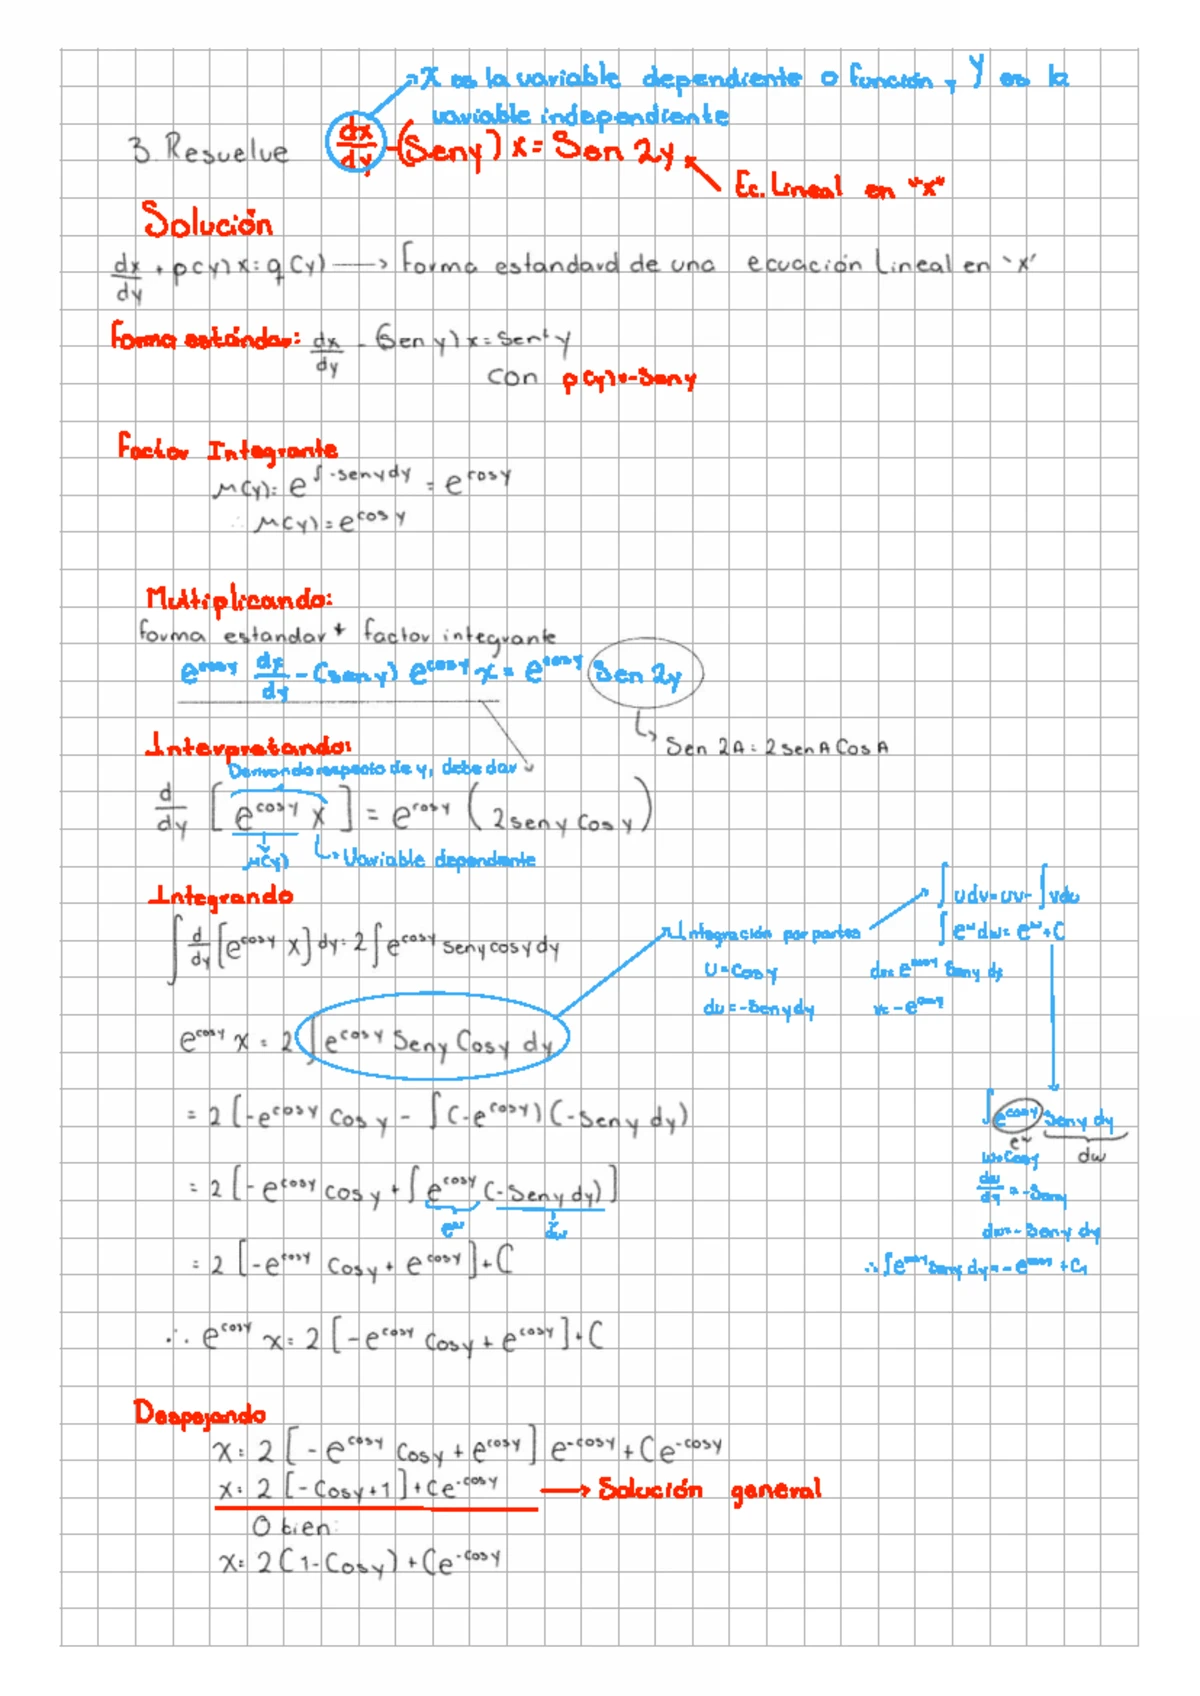 X es la variable dependiente o función, y Y es la
variable independiente
3. Resuelve dx/dy -(Seny) x = Sen 2y
Ec. Lineal en "x"
Solución
dx/dy + p(y) x = q(y) → Forma estandard de una ecuación Lineal en 'x'
Forma estándar: dx/dy - (Sen y) x =
con p(y) = -Sen y
Factor Integrante
μ(y) = e^∫-senydy = e^cosy
∴ μ(y) = e^cos y
Multiplicando:
forma estandar * factor integrante
e^cosy dx/dy - (sen y) e^cosy x = e^cosy Sen 2y
Sen 2A = 2 sen A Cos A
Interpretando:
Derivando respecto de y, debe dar
d/dy [e^cosy x] = e^cosy (2 sen y Cos y)
μ(y)
Variable dependiente
Integrando
∫ d/dy [e^cosy x] dy = 2 ∫ e^cosy seny cosy dy
Integración por partes
∫ u dv = uv - ∫ v du
∫ e^w dw = e^w + C
U = Cos y
dv = e^cosy Seny dy
du = -Seny dy
v = -e^cosy
e^cosy x = 2 ∫ e^cosy Seny Cosy dy
= 2 [-e^cosy Cos y - ∫ (-e^cosy) (-Seny dy)
∫ e^cosy Seny dy
e^w
dw
w = Cosy
dw/dy = -Seny
dw = -Seny dy
∴ ∫ e^cosy Seny dy = -e^cosy + C₁
= 2 [-e^cosy cos y + ∫ e^cosy (-Seny dy)]
e^w
dw
= 2 [-e^cosy Cosy + e^cosy] + C
∴ e^cosy x = 2 [-e^cosy Cosy + e^cosy] + C
Despejando
x = 2 [-e^cosy Cosy + e^cosy] e^-cosy + C e^-cosy
x = 2 [-Cosy + 1] + Ce^-cosy → Solución general
O bien:
x = 2 (1 - Cosy) + Ce^-cosy